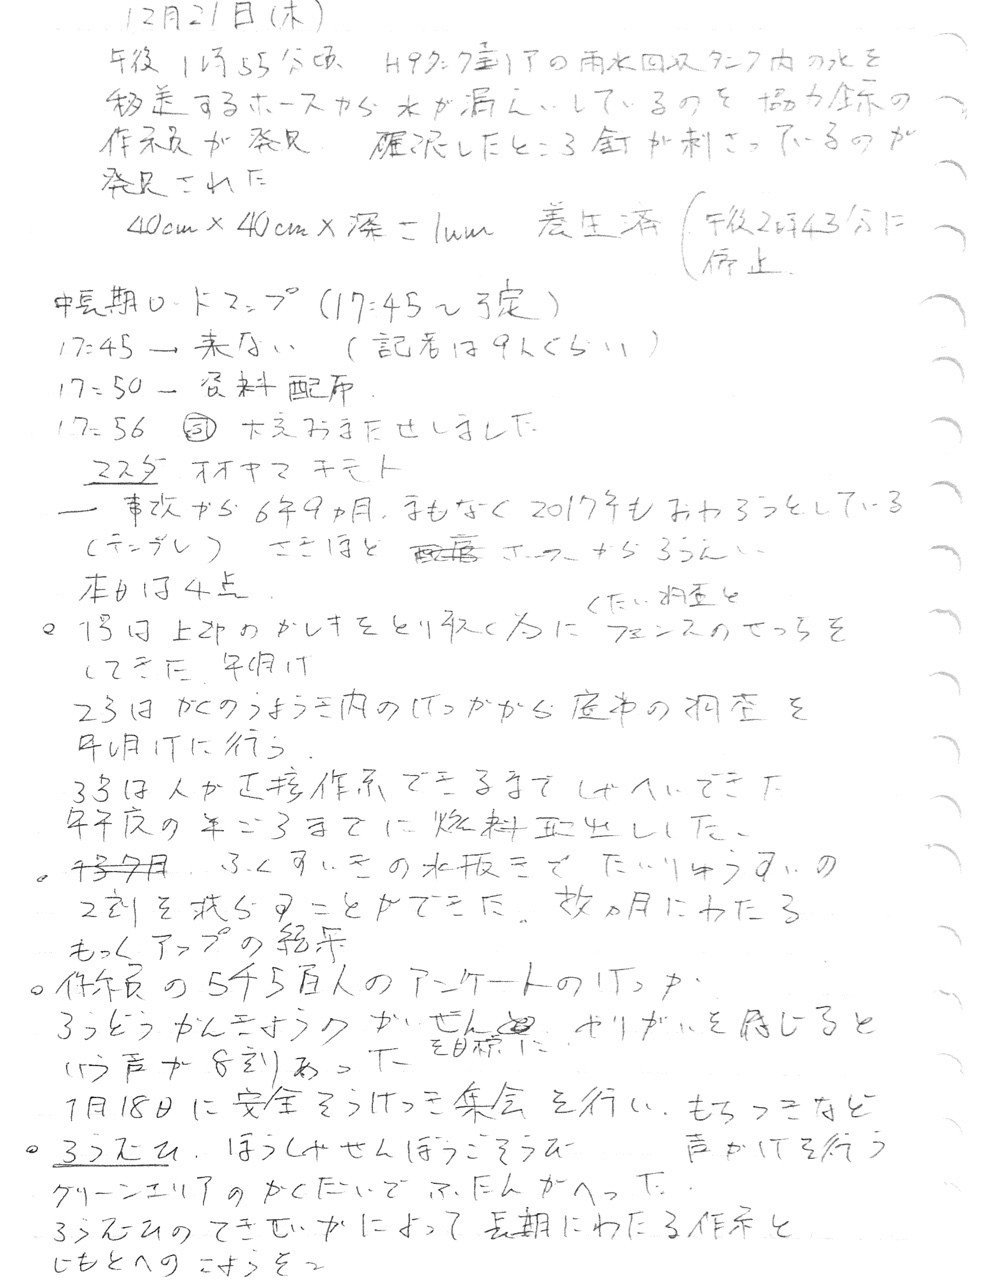 12月21日(木)
午後1時55分頃 H9タンク エリアの雨水回収タンク内の水を
移送するホースから水が漏えいしているのを協力企業の
作業員が発見 確認したところ釘が刺さっているのが
発見された
40cm×40cm×深さ1mm 養生済 (午後2時43分に
停止
中長期ロードマップ (17:45〜予定)
17:45 → 来ない (記者は9人ぐらい)
17:50 → 資料配布
17:56 司 大変おまたせしました
マスダ オオヤマ キモト
一 事故から6年9ヵ月、まもなく2017年もおわろうとしている
(テンプレ) さきほど から ろうえい
本日は4点
くたい調査と
○ 1号は上部のがれきをとり除く為に フェンスのせっちを
してきた 年明け
2号はかくのうようき内のけっかから 内部の調査を
年明けに行う
3号は人が直接作業できるまで しゃへいできた
年度の半ごろまでに燃料取出しした、
○ ふくすいきの水抜きで たいりゅうすいの
2割を減らすことができた。数ヵ月にわたる
もっくアップの結果
○ 作業員の5千5百人のアンケートのけっか
ろうどうかんきょうの かいぜん を目標に やりがいを感じると
いう声が8割あった
1月18日に安全そうけっき集会を行い、もちつきなど
声かけを行う
○ ろうむひ、ほうしゃせんぼうごそうび
グリーンエリアのかくだいで ふたんがへった
ろうむひのてきせいかによって 長期にわたる作業と
じもとへの